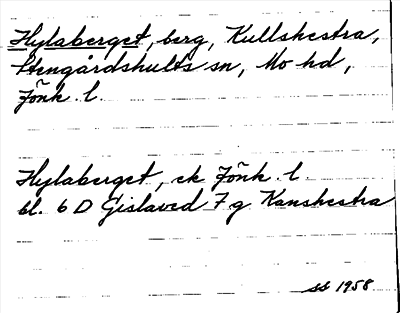 Hylaberget, berg, Kullshestra,
Stengårdshults sn, Mo hd,
Jönk. l.
Hylaberget, ek Jönk. l
bl. 6 D Gislaved 7 g Kanshestra
SS 1958